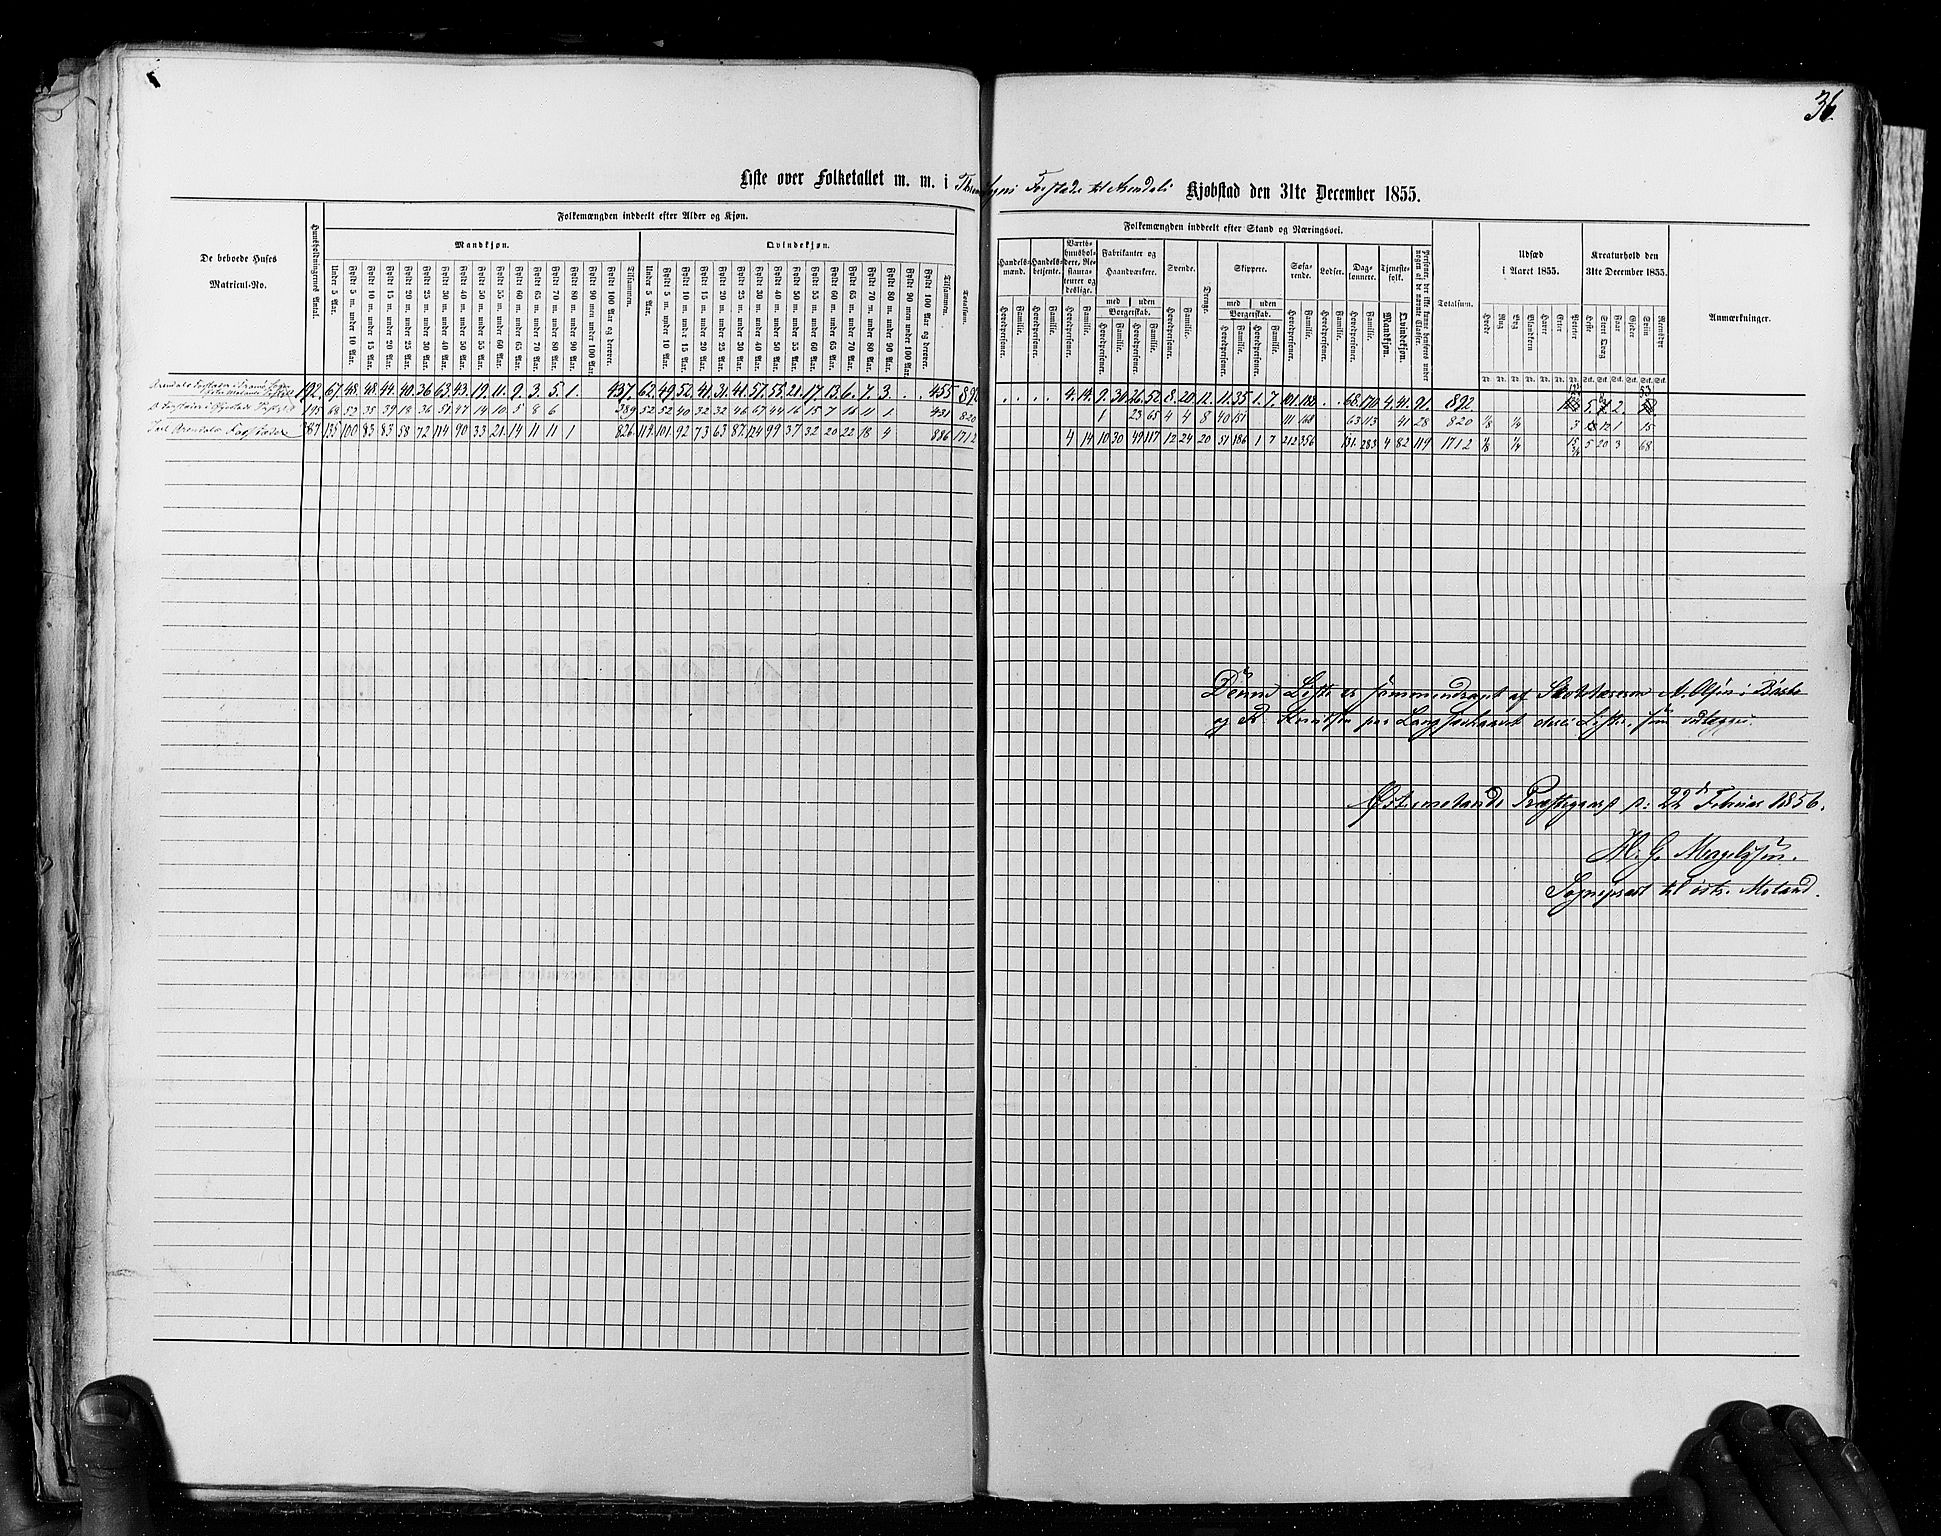 36.
Liste over Folketallet m. m. i Forstad til Arendals Kjøbstad den 31te December 1855.
De beboede Huses Matricul-No.
Huusholdningernes Antal.
Folkemængden inddeelt efter Alder og Kjøn.
Mandkjøn.
Qvindekjøn.
Under 5 Aar.
Fyldt 5 m. under 10 Aar.
Fyldt 10 m. under 15 Aar.
Fyldt 15 m. under 20 Aar.
Fyldt 20 m. under 25 Aar.
Fyldt 25 m. under 30 Aar.
Fyldt 30 m. under 40 Aar.
Fyldt 40 m. under 50 Aar.
Fyldt 50 m. under 55 Aar.
Fyldt 55 m. under 60 Aar.
Fyldt 60 m. under 65 Aar.
Fyldt 65 m. under 70 Aar.
Fyldt 70 m. under 80 Aar.
Fyldt 80 m. under 90 Aar.
Fyldt 90 men under 100 Aar.
Fyldt 100 Aar og derover.
Tilsammen.
Under 5 Aar.
Fyldt 5 m. under 10 Aar.
Fyldt 10 m. under 15 Aar.
Fyldt 15 m. under 20 Aar.
Fyldt 20 m. under 25 Aar.
Fyldt 25 m. under 30 Aar.
Fyldt 30 m. under 40 Aar.
Fyldt 40 m. under 50 Aar.
Fyldt 50 m. under 55 Aar.
Fyldt 55 m. under 60 Aar.
Fyldt 60 m. under 65 Aar.
Fyldt 65 m. under 70 Aar.
Fyldt 70 m. under 80 Aar.
Fyldt 80 m. under 90 Aar.
Fyldt 90 men under 100 Aar.
Fyldt 100 Aar og derover.
Tilsammen.
Totalsum.
Folkemængden inddeelt efter Stand og Næringsvei.
Handels-mænd.
Handels-betjente.
Værts-huushol-dere, Re-staura-teurer og deslige.
Fabrikanter og Haandværkere.
med | uden
Borgerskab.
Svende.
Drenge.
Skippere.
med | uden
Borgerskab.
Søfa-rende.
Lodser.
Dag-lønnere.
Tjeneste-folk.
Mandkjøn.
Qvindekjøn.
Personer, der ikke kunne henføres under nogen af de nævnte Classer.
Hovedpersoner. Familie.
Totalsum.
Udsæd i Aaret 1855.
Hvede Rug Byg Blandkorn Havre Erter Poteter
Kreaturhold den 31te December 1855.
Heste Stort Qvæg Faar Gjeder Sviin Rensdyr
Anmærkninger.
192. 67. 48. 48. 44. 40. 36. 63. 43. 19. 11. 9. 3. 5. 1. 437. 62. 49. 52. 41. 31. 41. 57. 55. 21. 17. 13. 6. 7. 3. . . 455 892
. . . . 4. 14. 9. 30. 26. 52. 8. 20. 12. 11. 35. 1. 7. 101. 188. . . 68. 170. 4. 41. 91. 892. 5. 2.
195 68 52 35 39 18 36 51 47 14 10 5 8 6 389 52 52 40 32 32 46 67 44 16 15 7 16 11 1 431 820
1 23 65 4 4 8 40 151 111 168 63 113 41 28 820 1/8 1/4 3 10 1 15
387 135 100 83 83 58 72 114 90 33 21 14 11 11 1 826 114 101 92 73 63 87 124 99 37 32 20 22 18 4 886 1712
4 14 10 30 49 117 12 24 20 51 186 1 7 212 356 131 283 4 82 119 1712 1/8 1/4 15 3/4 5 20 3 68
Denne Liste er sammendragen af
og K. Knudsen paa Lister, som vedlægges.
Østremolands Præstegaard d: 22d Februar 1856.
Sognepræst til østre Moland.